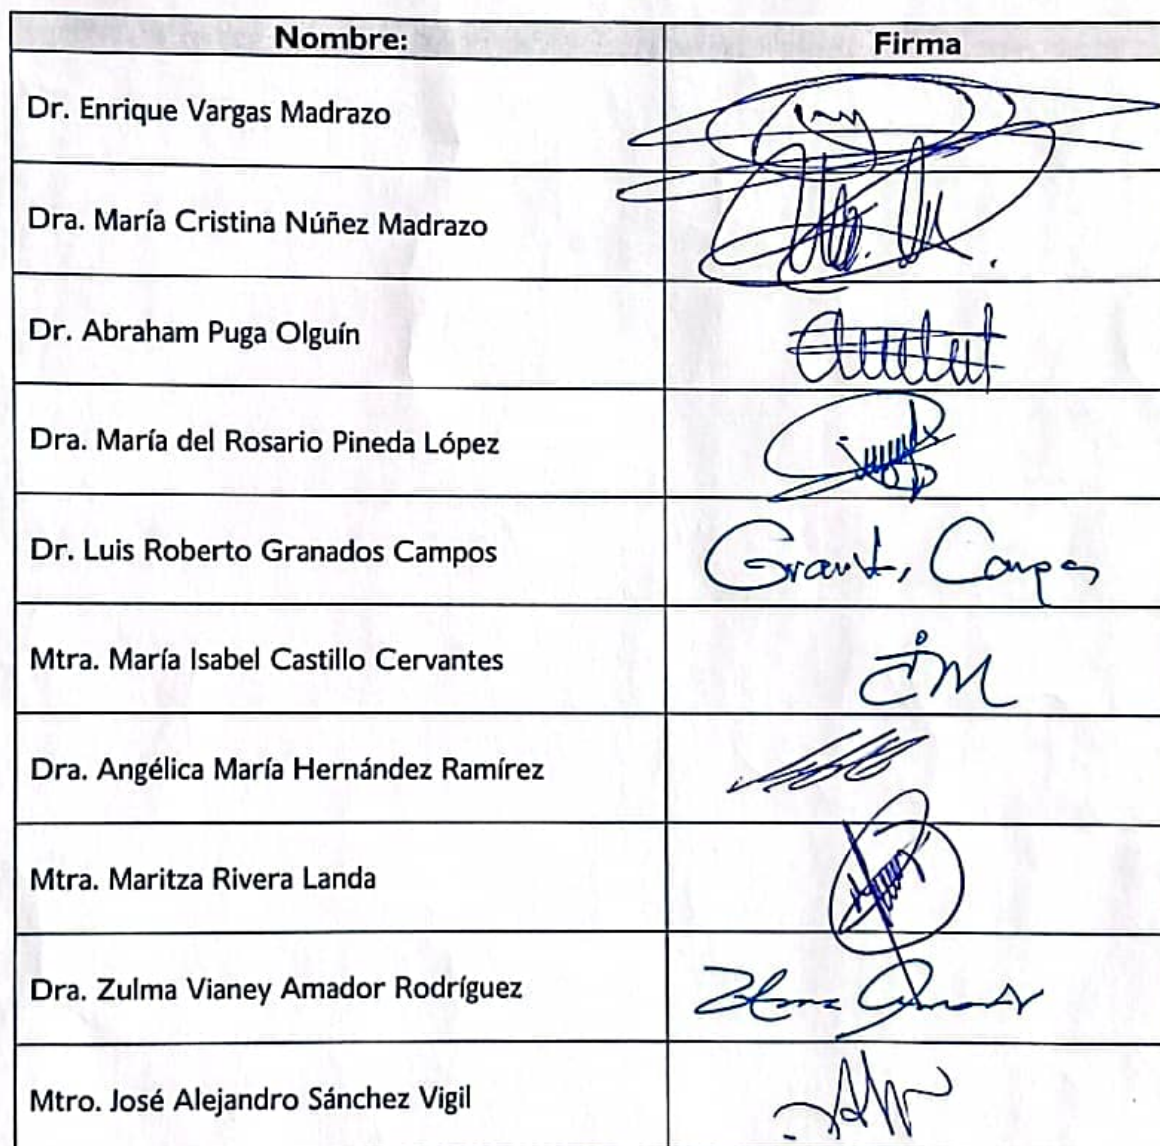 Nombre: Firma
Dr. Enrique Vargas Madrazo
Dra. María Cristina Núñez Madrazo
Dr. Abraham Puga Olguín
Dra. María del Rosario Pineda López
Dr. Luis Roberto Granados Campos
Mtra. María Isabel Castillo Cervantes
Dra. Angélica María Hernández Ramírez
Mtra. Maritza Rivera Landa
Dra. Zulma Vianey Amador Rodríguez
Mtro. José Alejandro Sánchez Vigil